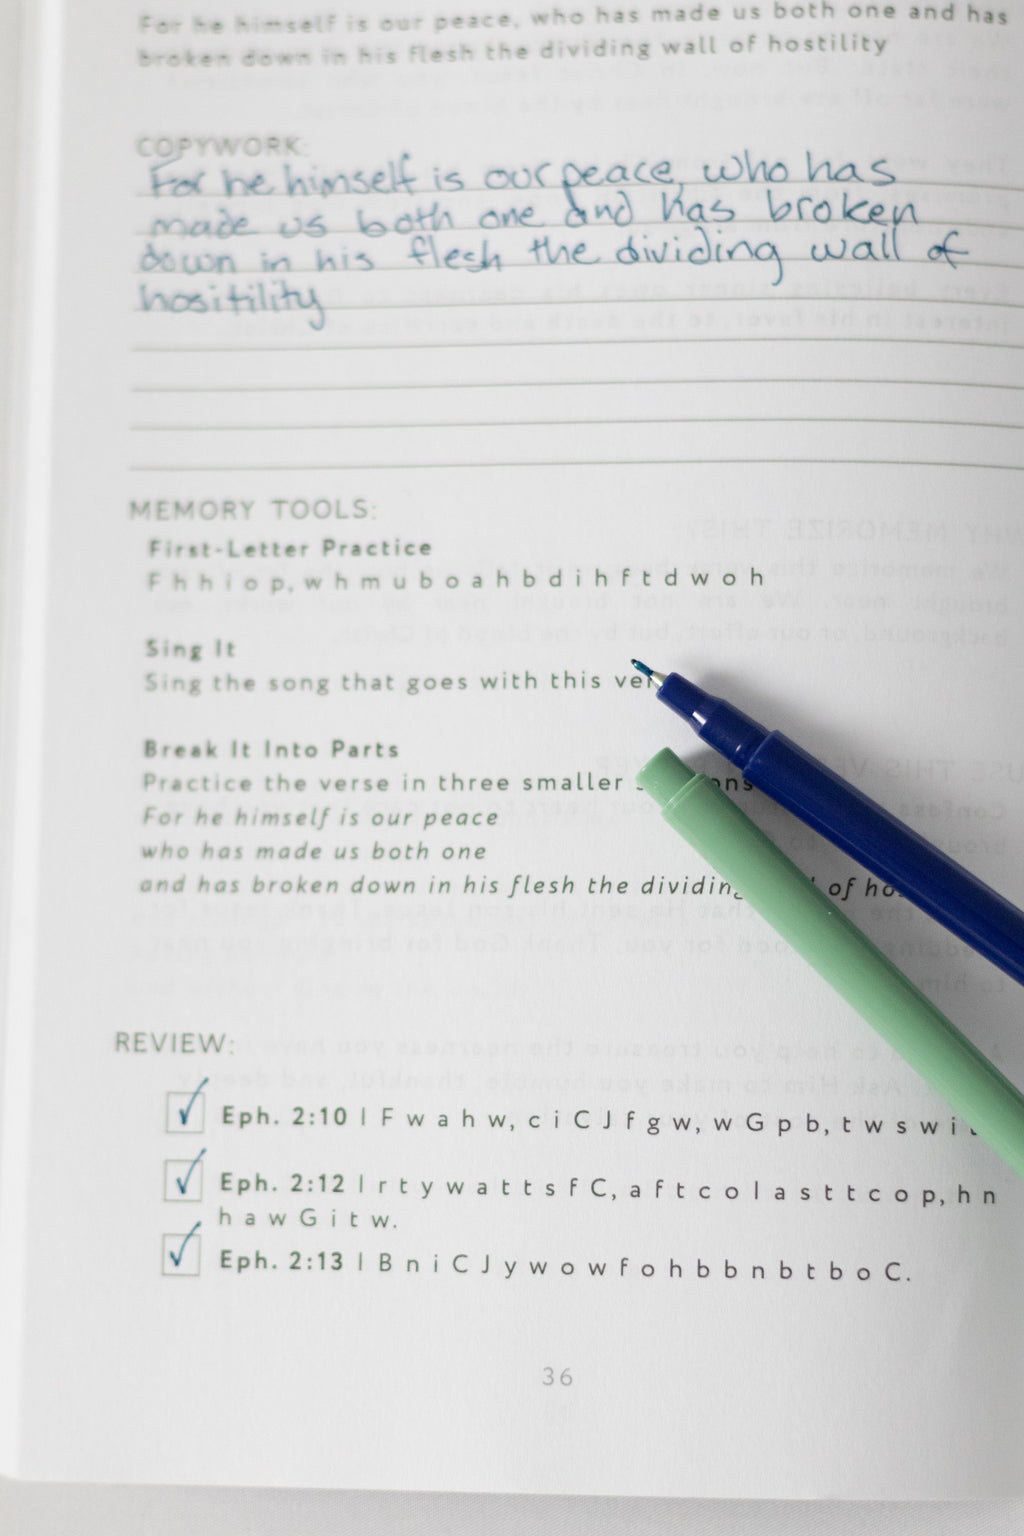 For he himself is our peace, who has made us both one and has
broken down in his flesh the dividing wall of hostility
COPYWORK:
For he himself is our peace, who has
made us both one and has broken
down in his flesh the dividing wall of
hositility
MEMORY TOOLS:
First-Letter Practice
F h h i o p, w h m u b o a h b d i h f t d w o h
Sing It
Sing the song that goes with this
Break It Into Parts
Practice the verse in three smaller
For he himself is our peace
who has made us both one
and has broken down in his flesh the dividing of
REVIEW:
Eph. 2:10 | F w a h w, c i C J f g w, w G p b, t w s w i
Eph. 2:12 | r t y w a t t s f C, a f t c o I a s t t c o p, h n
h a w G i t w.
Eph. 2:13 | B n i C J y w o w f o h b b n b t b o C.
36